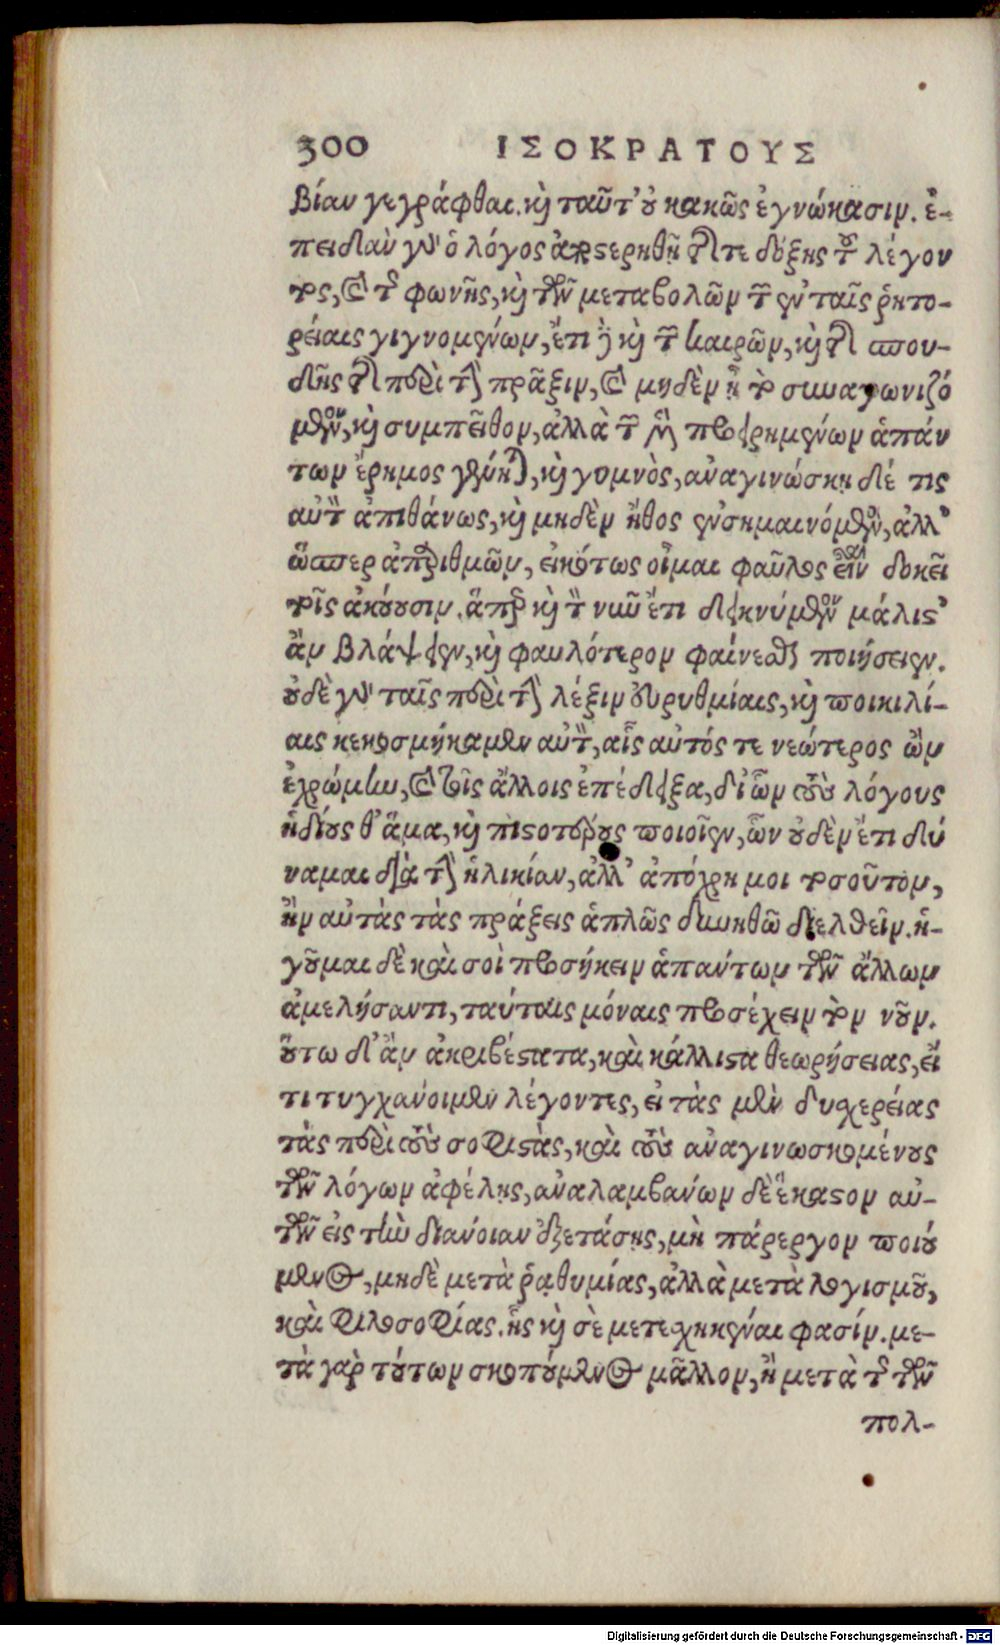 300 ΙΣΟΚΡΑΤΟΥΣ
βίαν γεγράφθαι. καὶ ταῦτ' οὐ κακῶς ἐγνώκασιν. ἐ-
πειδὰν γὰρ ὁ λόγος ἀποστερηθῇ τῆς τε δόξης τοῦ λέγον
τος, καὶ τῆς φωνῆς, καὶ τῶν μεταβολῶν τῶν ἐν ταῖς ῥητο-
ρείαις γιγνομένων, ἔτι δὲ καὶ τῶν καιρῶν, καὶ τῆς σπου-
δῆς τῆς περὶ τὴν πρᾶξιν, καὶ μηδὲν ᾖ τὸ συναγωνιζό
μενον, καὶ συμπεῖθον, ἀλλὰ τῶν μὲν προειρημένων ἁπάν
των ἔρημος γένηται, καὶ γυμνὸς, ἀναγινώσκῃ δέ τις
αὐτὸν ἀπιθάνως, καὶ μηδὲν ἦθος ἐνσημαινόμενος, ἀλλ'
ὥσπερ ἀπαριθμῶν, εἰκότως οἶμαι φαῦλος εἶναι δοκεῖ
τοῖς ἀκούουσιν. ἅπερ καὶ τὸν νῦν ἔτι δεικνύμενον μάλιστ'
ἂν βλάψειεν, καὶ φαυλότερον φαίνεσθαι ποιήσειεν.
οὐδὲ γὰρ ταῖς περὶ τὴν λέξιν εὐρυθμίαις, καὶ ποικιλί-
αις κεκοσμήκαμεν αὐτὸν, αἷς αὐτός τε νεώτερος ὢν
ἐχρώμην, καὶ τοῖς ἄλλοις ἐπέδειξα, δι' ὧν τοὺς λόγους
ἡδίους θ' ἅμα, καὶ πιστοτέρους ποιοῖεν, ὧν οὐδὲν ἔτι δύ
ναμαι διὰ τὴν ἡλικίαν, ἀλλ' ἀπόχρη μοι τοσοῦτον,
ἢν αὐτὰς τὰς πράξεις ἁπλῶς δυνηθῶ διελθεῖν. ἡ-
γοῦμαι δὲ καὶ σοὶ προσήκειν ἁπάντων τῶν ἄλλων
ἀμελήσαντι, ταύταις μόναις προσέχειν τὸν νοῦν.
οὕτω δ' ἂν ἀκριβέστατα, καὶ κάλλιστα θεωρήσειας, εἴ
τι τυγχάνοιμεν λέγοντες, εἰ τὰς μὲν δυσχερείας
τὰς περὶ τοὺς σοφιστὰς, καὶ τοὺς ἀναγινωσκομένους
τῶν λόγων ἀφέλῃς, ἀναλαμβάνων δὲ ἕκαστον αὐ-
τῶν εἰς τὴν διάνοιαν ἐξετάσῃς, μὴ πάρεργον ποιού
μενος, μηδὲ μετὰ ῥαθυμίας, ἀλλὰ μετὰ λογισμοῦ,
καὶ φιλοσοφίας. ἧς καὶ σὲ μετεχηκέναι φασίν. με-
τὰ γὰρ τούτων σκοπούμενος μᾶλλον, ἢ μετὰ τῆς τῶν
πολ-
Digitalisierung gefördert durch die Deutsche Forschungsgemeinschaft - DFG